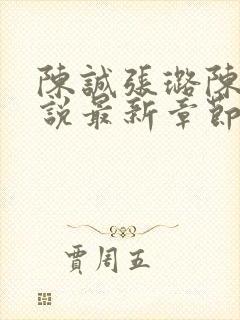 陳誠張璐陳
說最新章節
賈周五